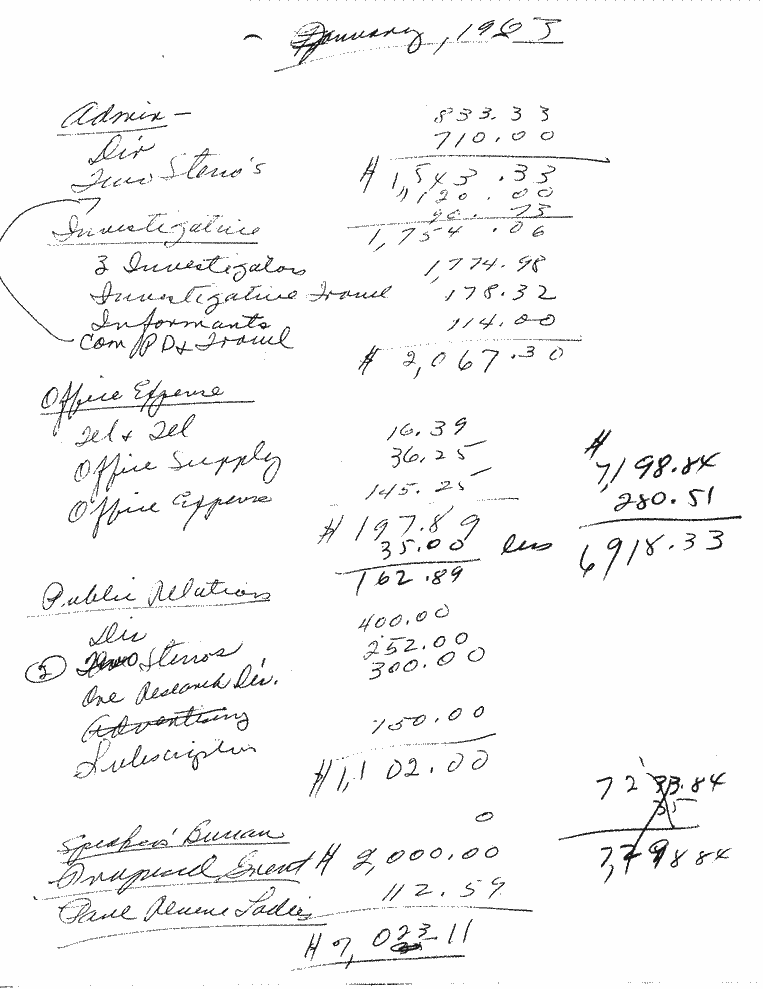 - January, 1963
Admin - 833.33
Dir 710.00
Two Steno's $ 1,543.33
1,120.00
90.73
Investigative 1,754.06
3 Investigators 1,774.98
Investigative Travel 178.32
Informants 114.00
Com PD & Travel $ 2,067.30
Office Expense
Tel & Tel 16.39
Office Supply 36.25
Office Expense 145.25
$ 197.89
35.00 less
162.89
$ 7,198.84
280.51
6918.33
Public Relations
Dir 400.00
2 Two Stenos 252.00
One Research Dir. 300.00
Advertising
Subscription 150.00
$ 1,102.00
7233.84
35
7,19884
Speakers' Bureau 0
Proposed Grant $ 2,000.00
Paul Revere Ladies 112.59
$ 7,023.11